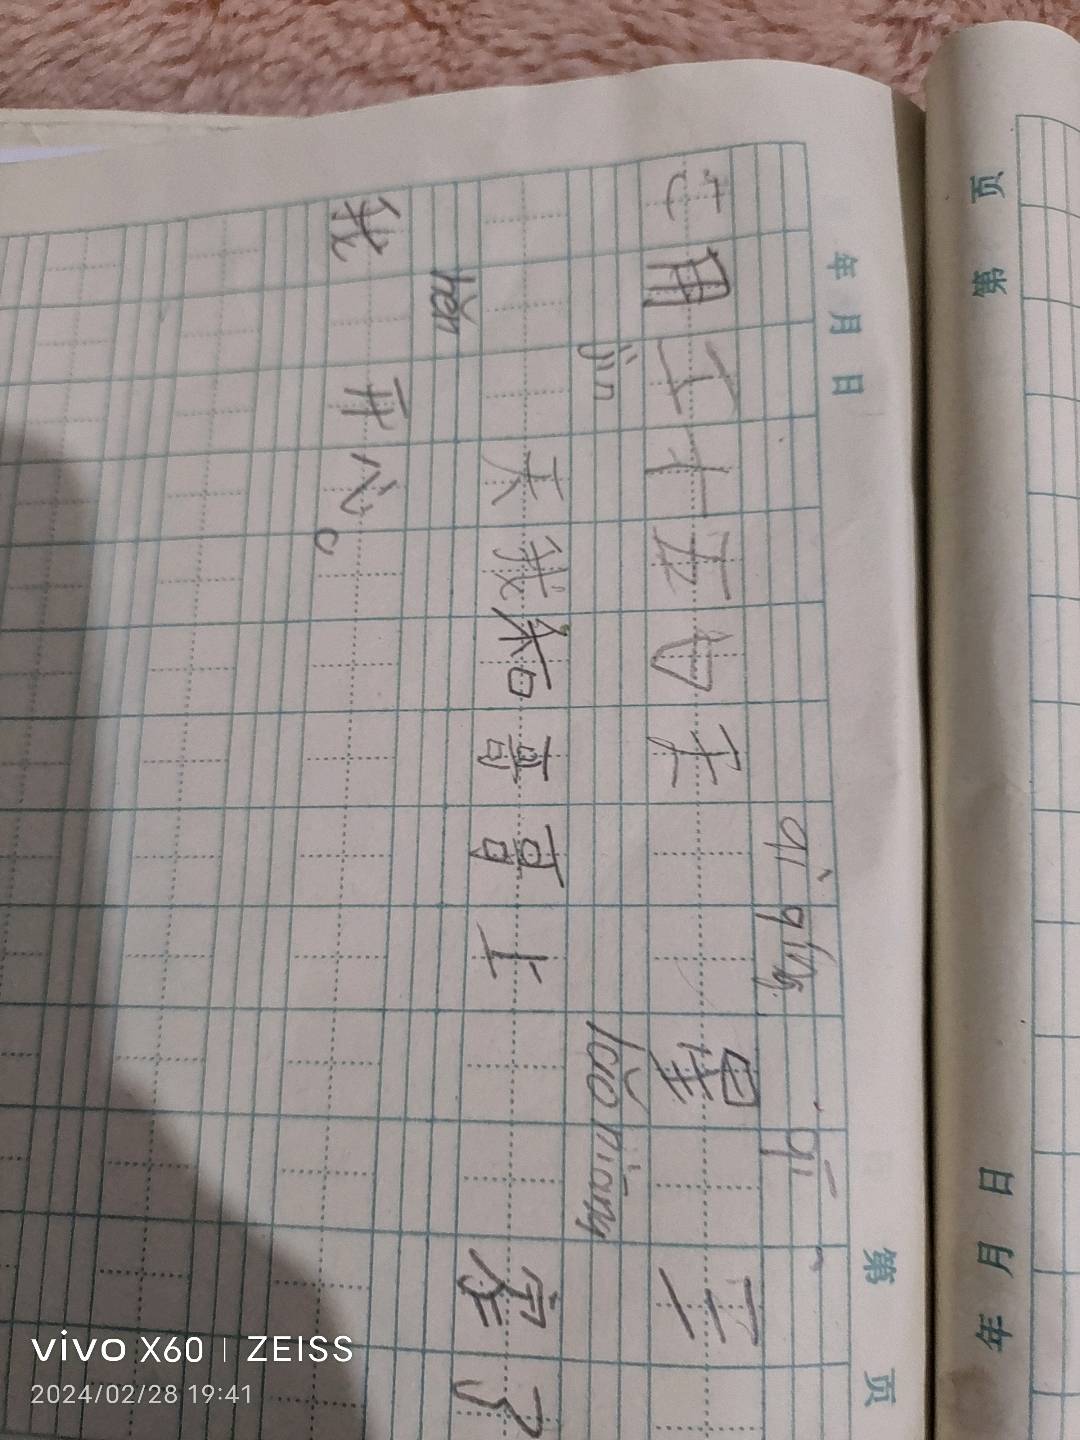 年 月 日 第 页
月 二 十 五 日 天 qì qíng 星 qī 二
jīn 天 我 和 哥 哥 上 lǎo niáng 家 了
我 hěn 开 心 。
第 页 年 月 日
vivo X60 | ZEISS
2024/02/28 19:41